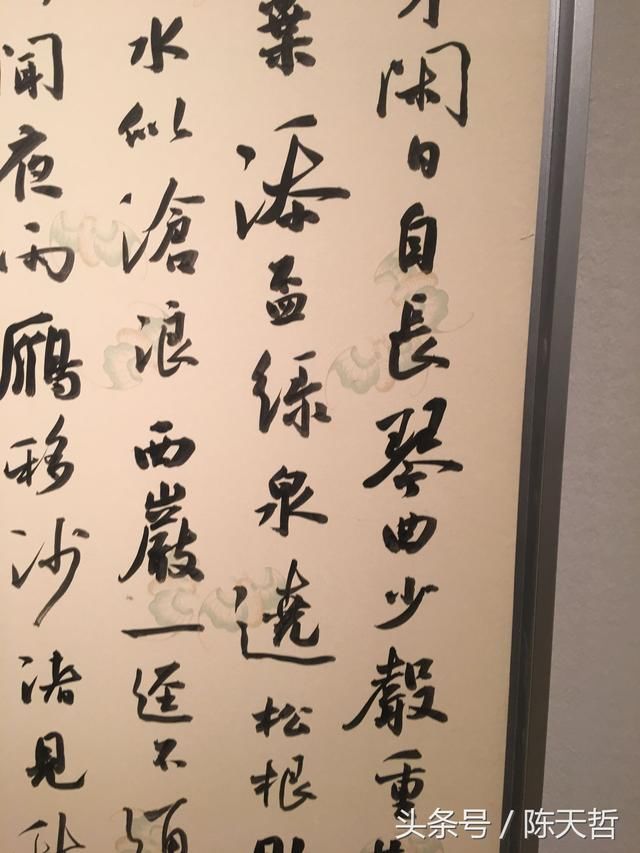 閑日自長琴曲少聲重
葉添盃綠泉遶松根
水似滄浪西巖一逕不
聞夜雨鴈移沙渚見
头条号 / 陈天哲